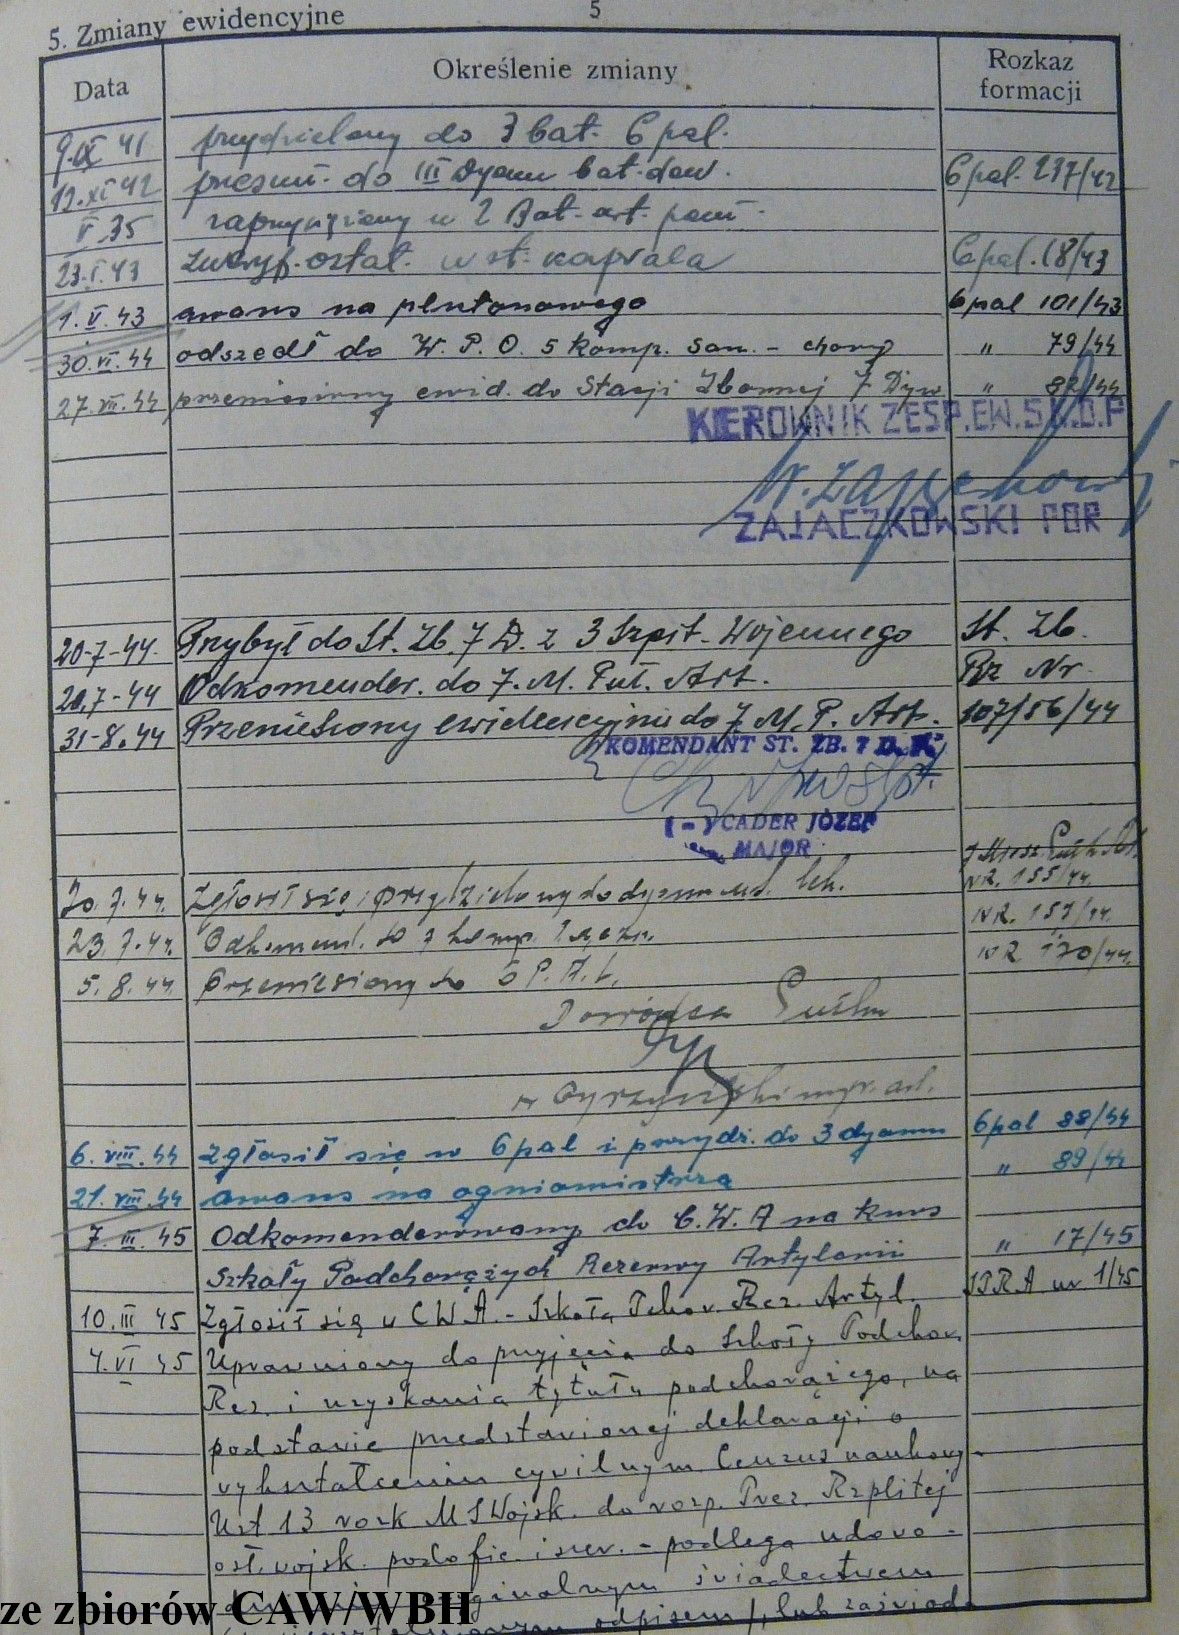 5
5. Zmiany ewidencyjne
Data Określenie zmiany Rozkaz formacji
9.IX 41 przydzielony do 3 bat. 6 pal.
12.XI 42 przesun. do III Dyonu bat. dow. 6 pal. 237/42
V.35 zaprzysiężony w 2 Bat. art. pom.
23.I.43 zweryf. ostat. w st. kaprala 6 pal. 18/43
1.V.43 awans na plutonowego 6 pal 101/43
30.VI.44 odszedł do W.P.O. 5 komp. san. - chory " 79/44
27.VII.44 przeniesiony ewid. do Stacji Zbornej 7 Dyw " 82/44
KIEROWNIK ZESP.EW.
W. Zajączkowski
ZAJACZKOWSKI POR
20-7-44. Przybył do St. Zb. 7 D. z 3 Szpit. Wojennego St. Zb.
20.7-44 Odkomender. do 7. M. Puł. Art. Rz Nr.
31-8.44 Przeniesiony ewidencyjnie do 7 M. P. Art. 107/56/44
KOMENDANT ST. ZB. 7 D.
(-) CADER JÓZEF
MAJOR
20.7.44. Zgłosił się i przydzielony do dyonu NR. 155/44.
23.7.44. Odkomend. do 7 komp. NR. 157/44.
5.8.44 Przeniesiony do 6 P.A.L. NR 170/44.
Dowódca Pułku
mjr. art.
6.VIII.44 zgłosił się w 6 pal i przydz. do 3 dyonu 6 pal 88/44
21.VIII.44 awans na ogniomistrza " 89/44
7.III.45 Odkomenderowany do C.W.A na kurs
Szkoły Podchorążych Rezerwy Artylerii " 17/45
10.III 45 Zgłosił się w CWA - Szkoła Pchor. Rez. Artyl. SPRA nr 1/45
4.VI 45 Uprawniony do przyjęcia do Szkoły Podchor.
Rez. i uzyskania tytułu podchorążego, na
podstawie przedstawionej deklaracji o
wykształceniu cywilnym. Cenzus naukowy
Ust 13 rozk M S Wojsk. do rozp. Prez. Rzplitej
o st. wojsk. podofic. i szer. - podlega udowo-
oryginalnym świadectwem
odpisem /, lub zaświad
ze zbiorów CAW/WBH